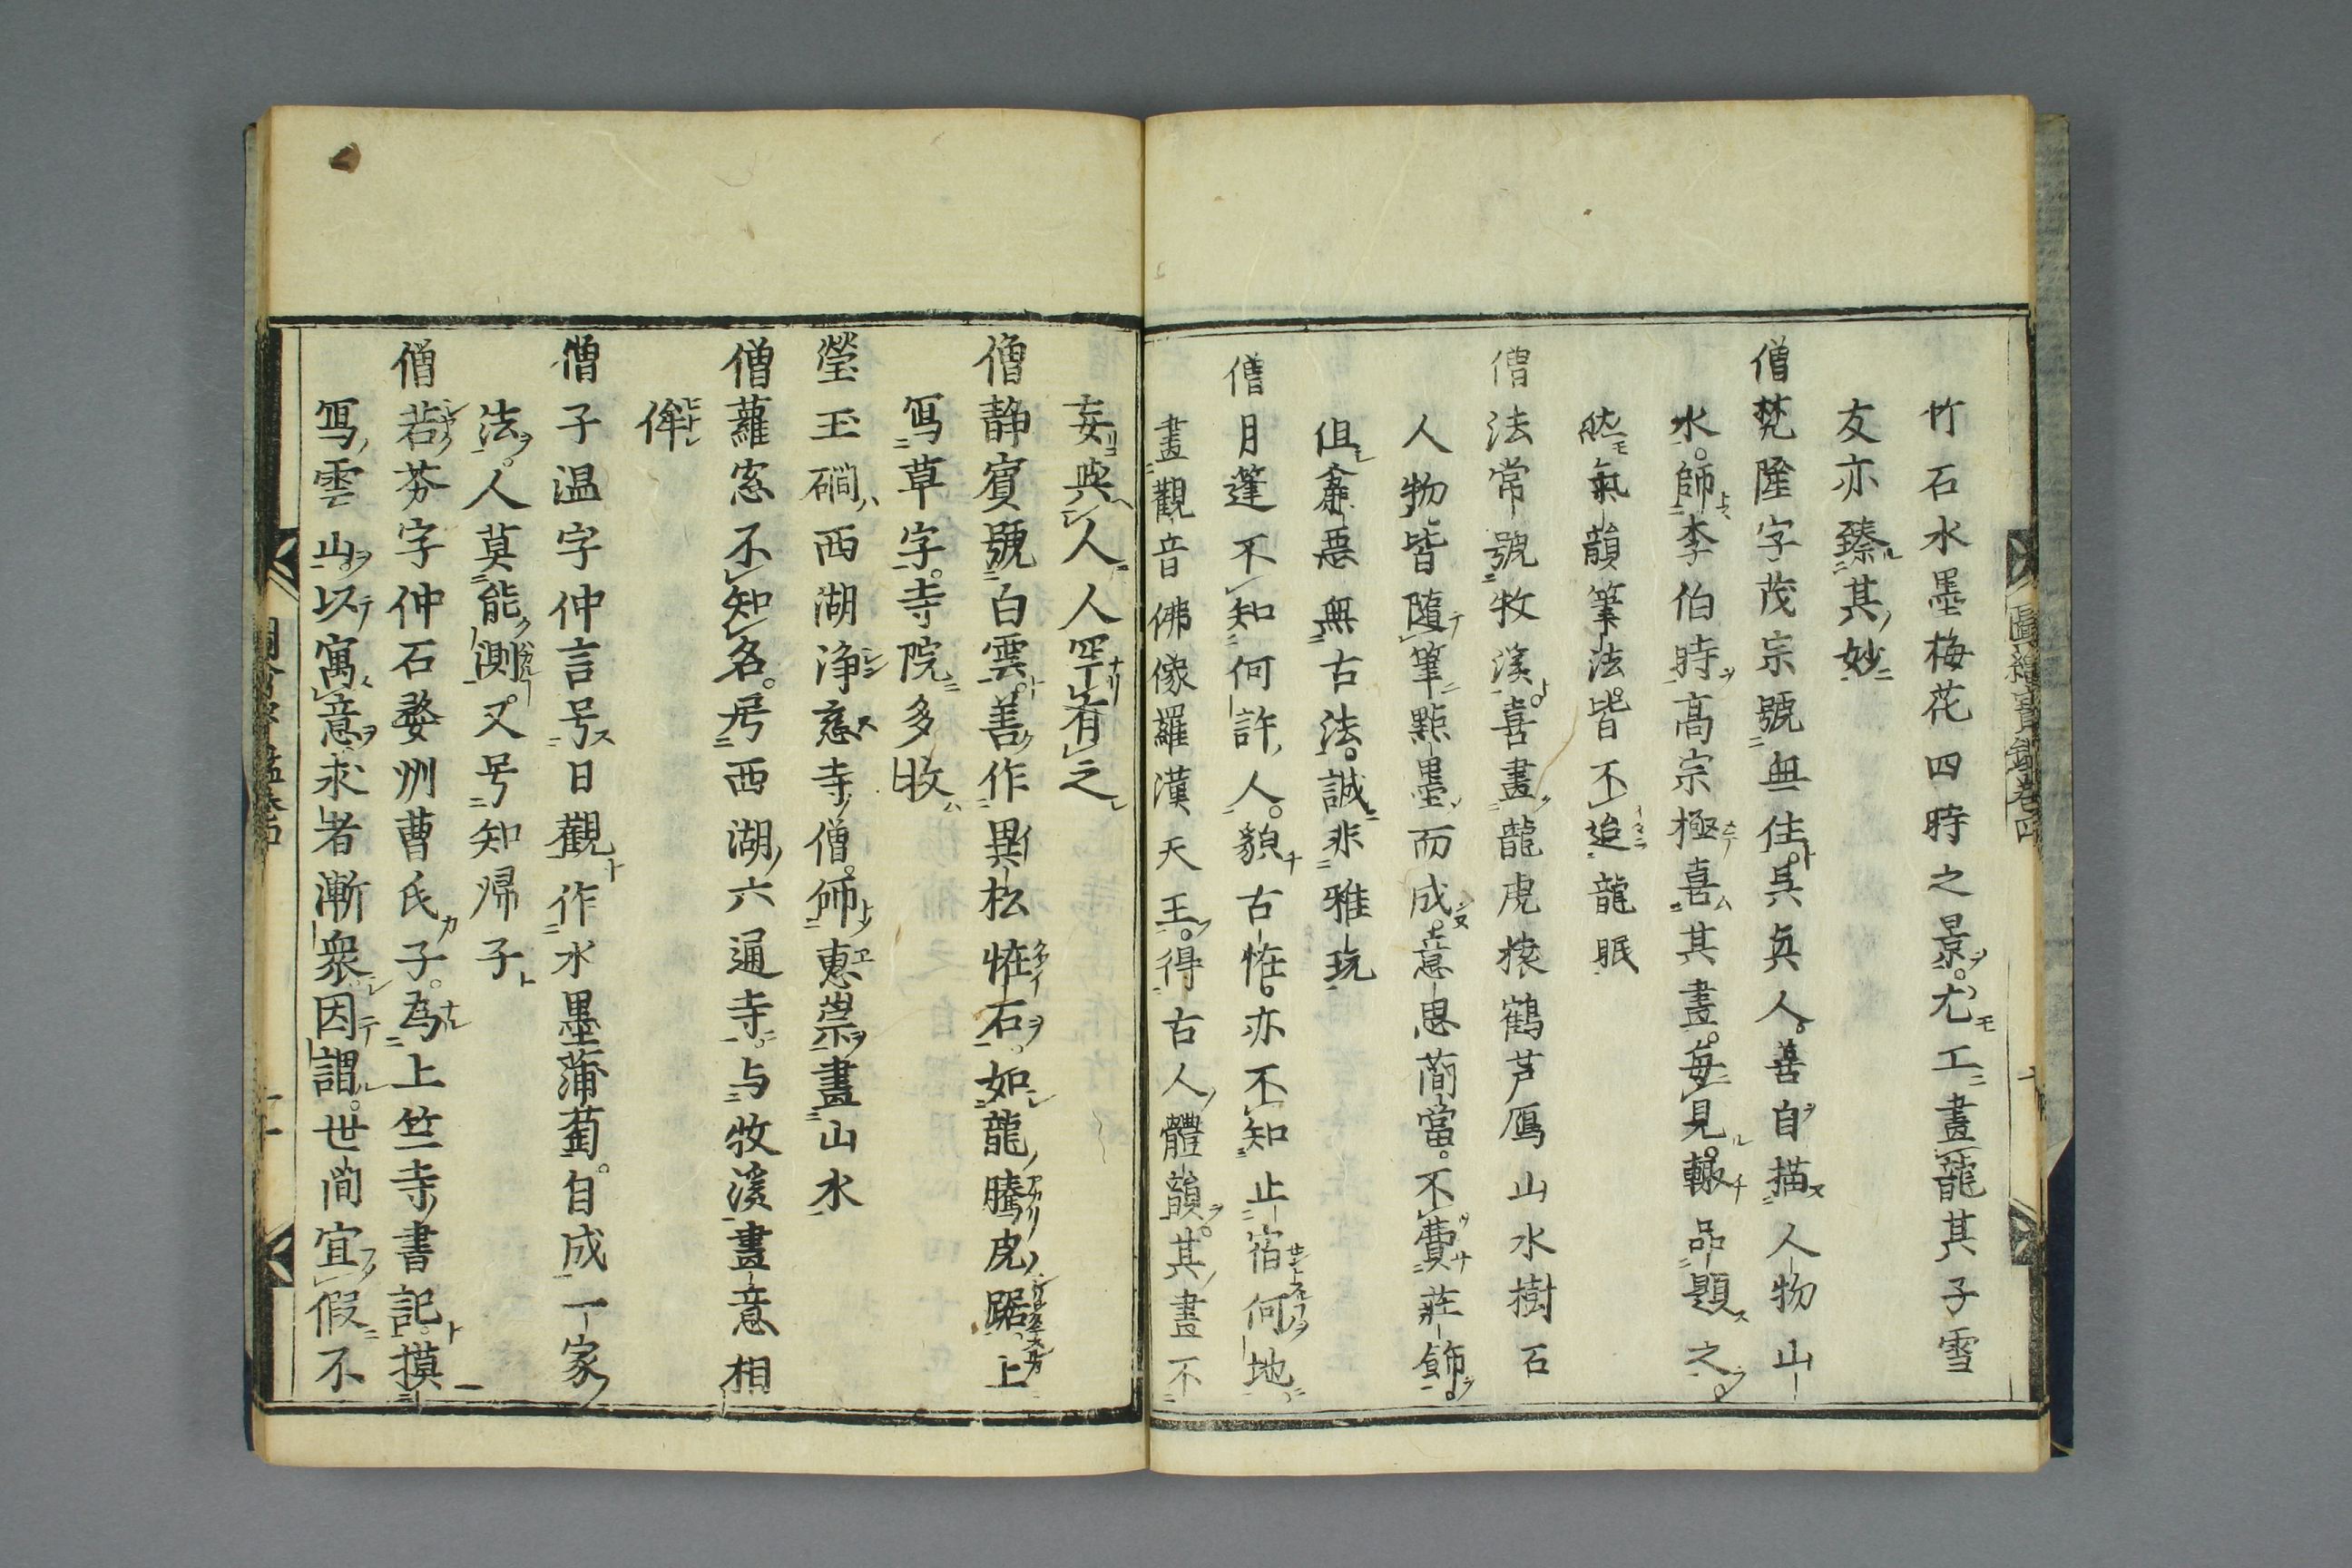 竹石水墨梅花四時之景尤工畫龍其子雪
友亦臻其妙
僧梵隆字茂宗號無住其真人善自描人物山
水師李伯時高宗極喜其畫每見輒品題之
然氣韻筆法皆不迨龍眠
僧法常號牧溪喜畫龍虎猿鶴芦鴈山水樹石
人物皆隨筆點墨而成意思簡當不費莊飾
但麁惡無古法誠非雅玩
僧月蓬不知何許人貌古恠亦不知止宿何地
畫觀音佛像羅漢天王得古人體韻其畫不
妄與人人罕有之
僧靜賓號白雲善作異松恠石如龍騰虎踞上
寫草字寺院多收
瑩玉磵西湖淨慈寺僧師惠崇畫山水
僧蘿窓不知名居西湖六通寺与牧溪畫意相
侔
僧子温字仲言号日觀作水墨蒲萄自成一家
法人莫能測又号知帰子
僧若芬字仲石婺州曹氏子為上竺寺書記摸
寫雲山以寓意求者漸衆因謂世間宜假不